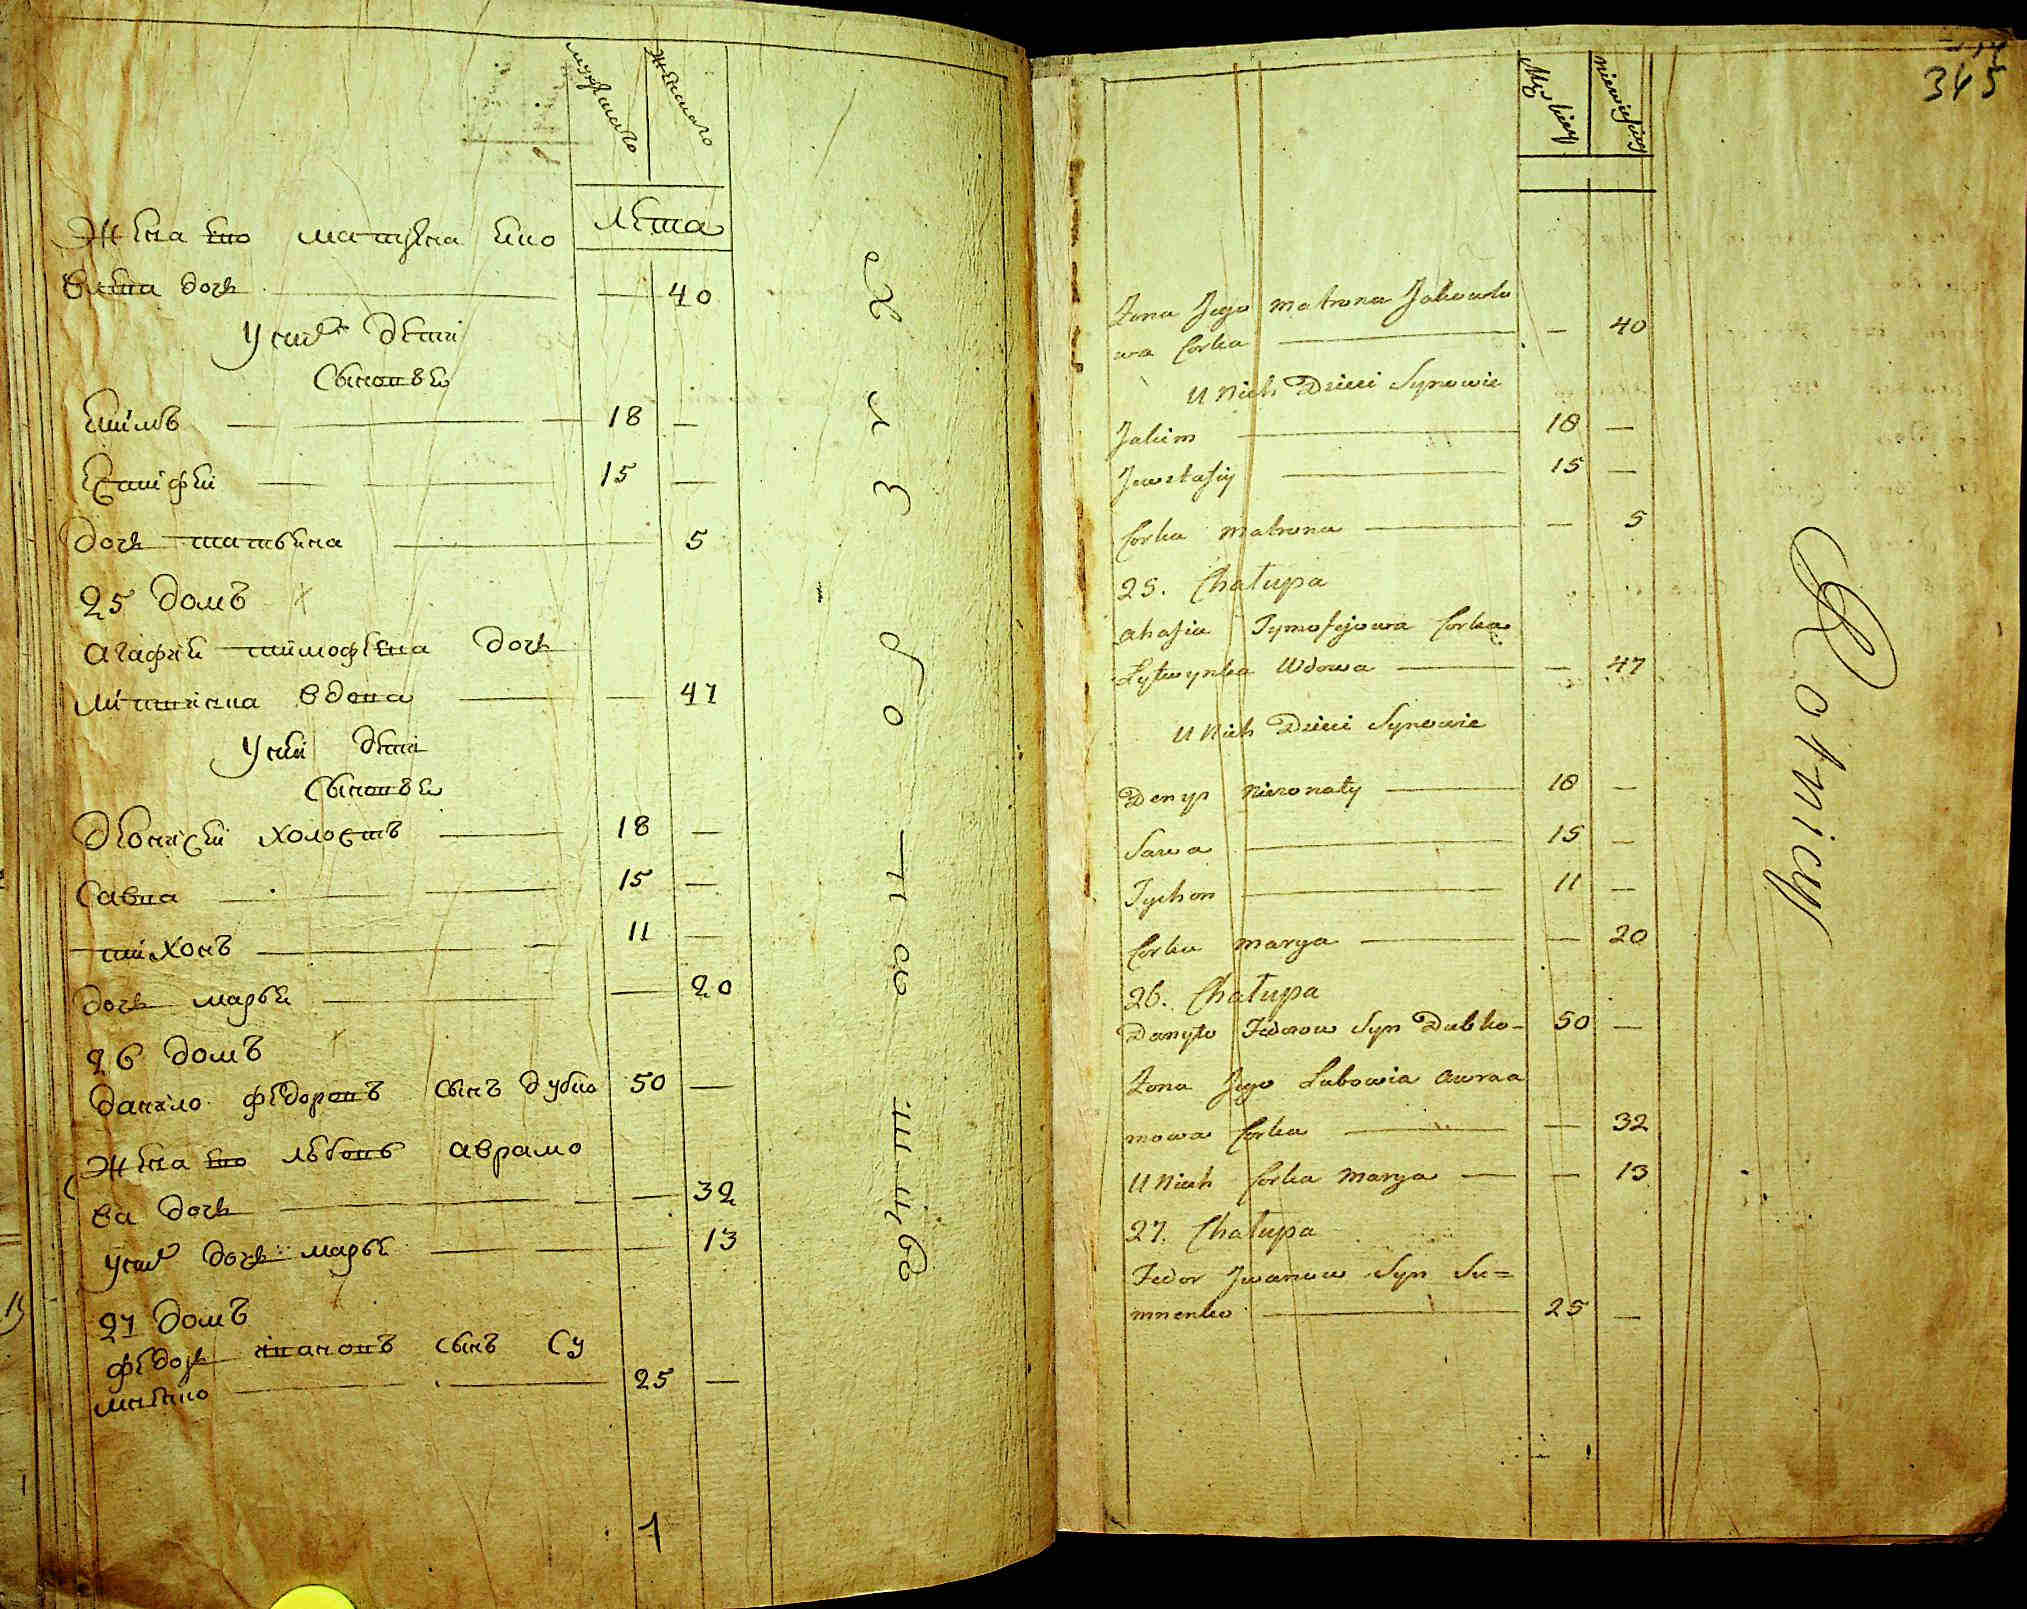 мужскаго
женскаго
лета
жена его матрена яко
влева дочь — 40
у них дети
сыновьи
еким 18 —
евстафей 15 —
дочь матвена 5
25 домъ
агафия тимофеева дочь
литвинка вдова — 47
у ней дети
сыновьи
деонисей холостъ 18 —
савва 15 —
тихонъ 11 —
дочь марья — 20
26 домъ
данило федоровъ сынъ дубко 50 —
жена его любовь аврамо
ва дочь — 32
у них дочь марья — 13
27 домъ
федоръ ивановъ сынъ су
мненко 25 —
1
345
Męskiey
niewieściey
Zona Jego Matrona Jakowle
wa Corka — 40
U Nich Dzieci Synowie
Jakim 18 —
Jewstafiy 15 —
Corka Matrona — 5
25. Chałupa
Ahafia Tymofejowa Corka
Lytwynka Wdowa — 47
U Nich Dzieci Synowie
Denys Nieżonaty 18 —
Sawa 15 —
Tychon 11 —
Corka Marya — 20
26. Chałupa
Danyło Fedorow Syn Dubko 50 —
Zona Jego Lubowia Awraa
mowa Corka — 32
U Nich Corka Marya — 13
27. Chałupa
Fedor Jwanow Syn Su=
mnenko 25 —
Rotnicy